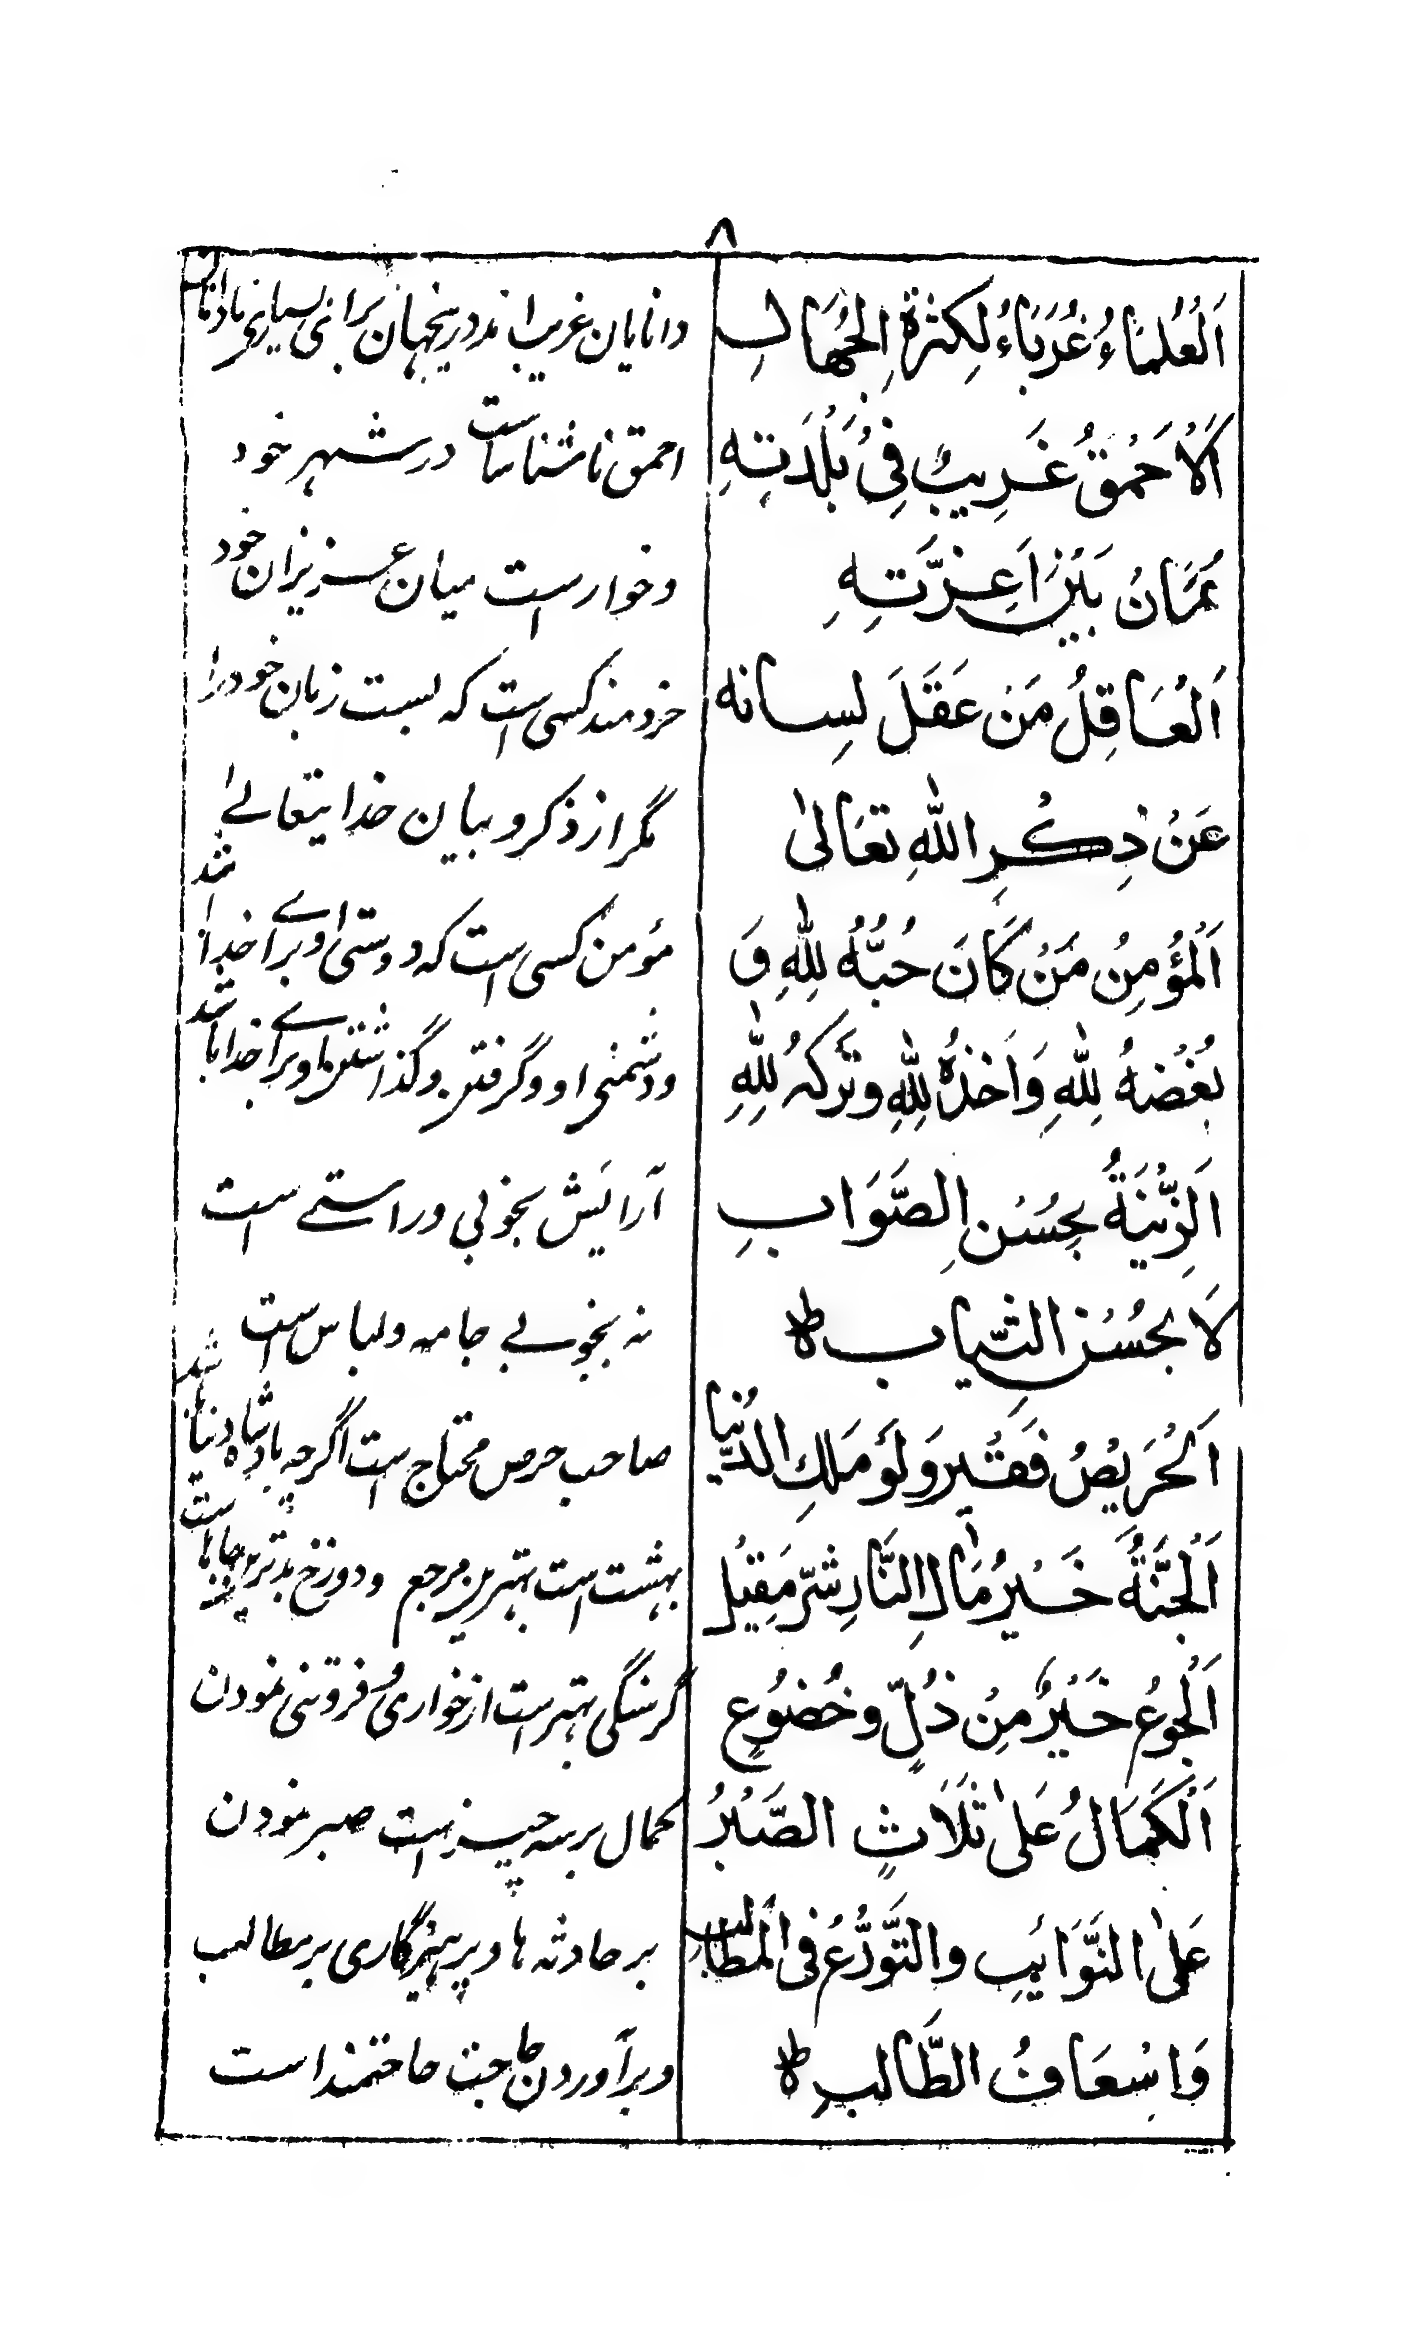 ۸
اَلْعُلَمَاءُ غُرَبَاءُ لِكَثْرَةِ الْجُهَّالِ
دانایان غریب اند در ینجهان برای بسیاری نادانان
اَلْاَحْمَقُ غَرِيبٌ فِيْ بَلْدَتِهٖ
احمق ناشناساست در شهر خود
مُهَانٌ بَيْنَ اَعِزَّتِهٖ
و خوار است میان عزیزان خود
اَلْعَاقِلُ مَنْ عَقَلَ لِسانه
خردمند کسی است که بست زبان خود را
عَنْ ذِكْرِ اللّٰهِ تعَالىٰ
مگر از ذکر و بیان خدایتعالے
اَلْمُؤْمِنُ مَنْ كَانَ حُبُّهُ لِلّٰهِ وَ
مؤمن کسی است که دوستی او براے خدا باشد
بُغْضُهُ لِلّٰهِ وَاَخْذُهُ لِلّٰهِ وتَرْكهُ لِلّٰهِ
و دشمنی او و گرفتن و گذاشتن او براے خدا باشد
اَلزِّيْنَةُ بِحُسْنِ الصَّوَابِ
آرایش بخوبی و راستے است
لَا بحُسْنِ الثِّيَاب
نه بخوبے جامه و لباس است
اَلْحَرِيْصُ فَقِيْر وَلَوْ مَلَكَ الدُّنْيا
صاحب حرص محتاج است اگرچه بادشاه دنیا باشد
اَلْجَنَّةُ خَيْرُ مَاٰلِ النَّارِ شَرّ مَقِيْل
بهشت است بهترین مرجع و دوزخ بدترین جاها است
اَلْجُوعُ خَيْرٌ مِنْ ذُلٍّ وخُضُوْعٍ
گرسنگی بهتر است از خواری و فروتنی نمودن
اَلْكَمَالُ عَلىٰ ثَلَاثٍ الصَّبْرُ
کمال بر سه چیز است صبر نمودن
عَلىٰ النَّوَائِبِ والتَّوَرُّعُ فى الْمطَالِب
بر حادثه ها و پرهیزگاری بر مطالب
وَاسْعَافُ الطَّالبِ
و برآوردن حاجت حاجتمند است